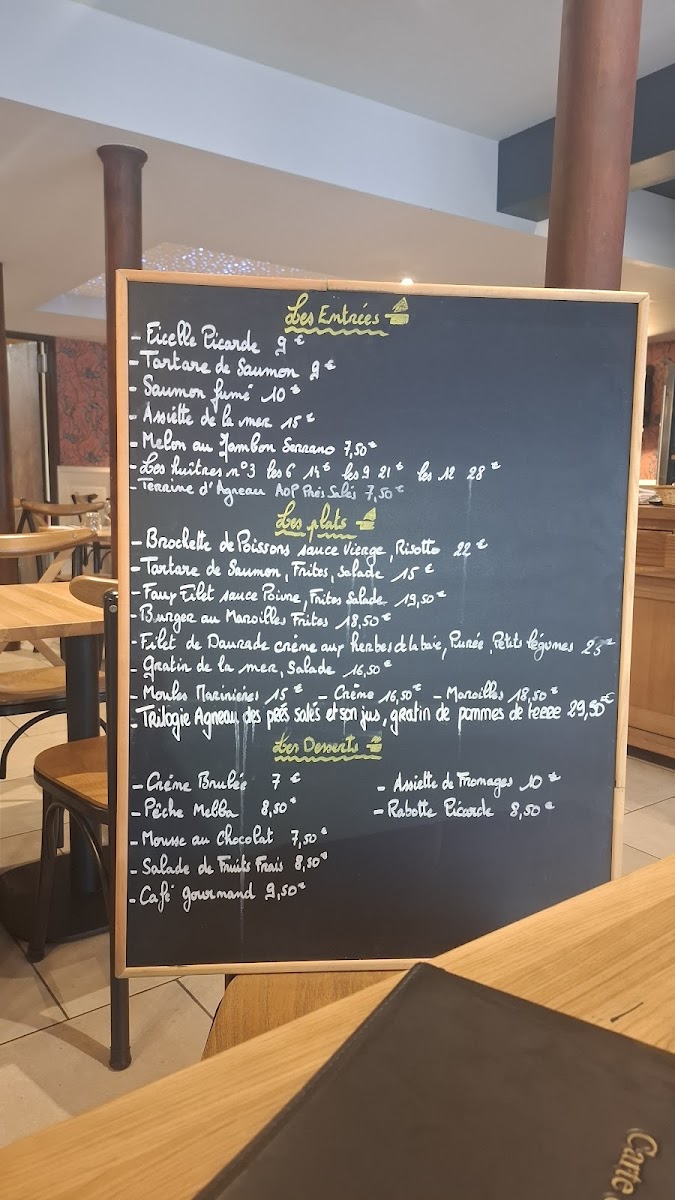 Les Entrées
- Ficelle Picarde 9 €
- Tartare de Saumon 9 €
- Saumon fumé 10 €
- Assiette de la mer 15 €
- Melon au Jambon Serrano 7,50 €
- Les huîtres n°3 les 6 14 € les 9 21 € les 12 28 €
- Terrine d'Agneau AOP Prés Salés 7,50 €
Les plats
- Brochette de Poissons sauce Vierge, Risotto 22 €
- Tartare de Saumon, Frites, Salade 15 €
- Faux Filet sauce Poivre, Frites Salade 19,50 €
- Burger au Maroilles Frites 18,50 €
- Filet de Daurade crème aux herbes de la baie, Purée, Petits légumes 25 €
- Gratin de la mer, Salade 16,50 €
- Moules Marinières 15 € - Crème 16,50 € - Maroilles 18,50 €
- Trilogie Agneau des prés salés et son jus, gratin de pommes de terre 29,50 €
Les Desserts
- Crème Brulée 7 € - Assiette de Fromages 10 €
- Pêche Melba 8,50 € - Rabotte Picarde 8,50 €
- Mousse au Chocolat 7,50 €
- Salade de Fruits Frais 8,50 €
- Café gourmand 9,50 €
Carte